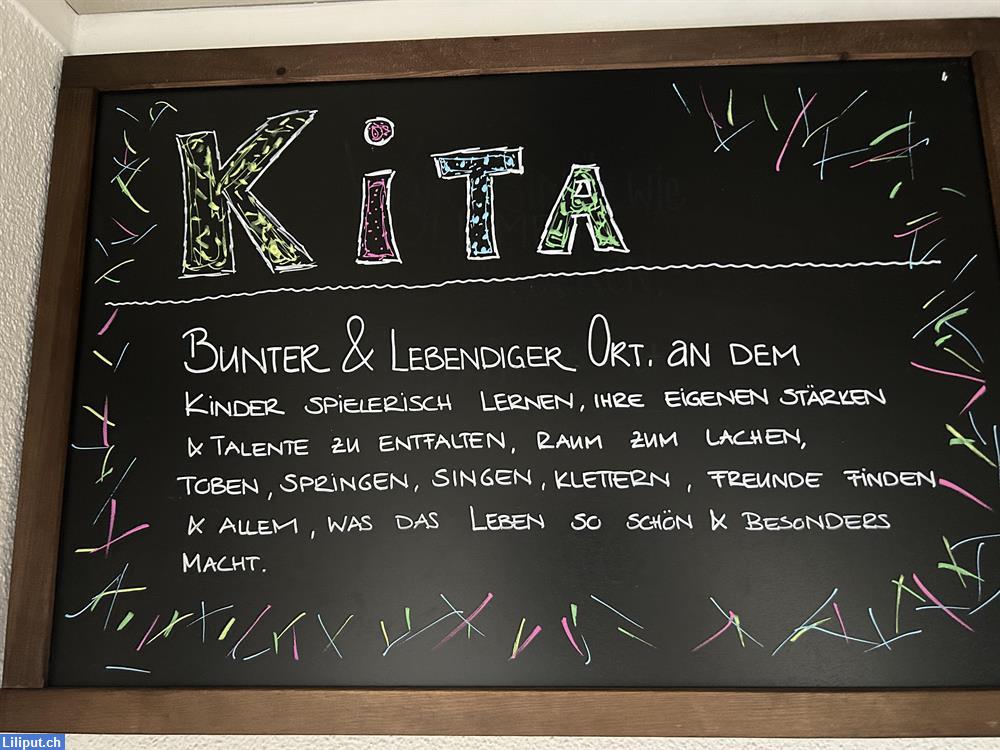 KiTA
BUNTER & LEBENDIGER ORT. AN DEM
KINDER SPIELERISCH LERNEN, IHRE EIGENEN STÄRKEN
& TALENTE ZU ENTFALTEN, RAUM ZUM LACHEN,
TOBEN, SPRINGEN, SINGEN, KLETTERN, FREUNDE FINDEN
& ALLEM, WAS DAS LEBEN SO SCHÖN & BESONDERS
MACHT.
Liliput.ch